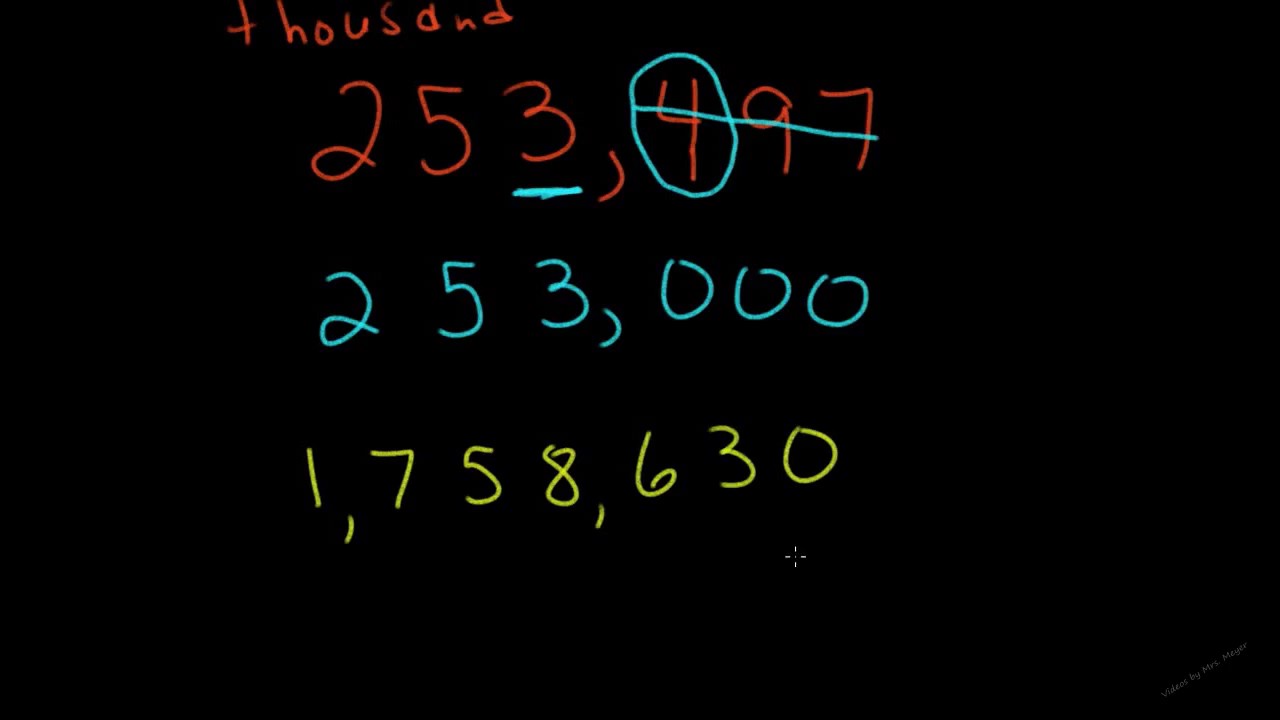 thousand
253,497
253,000
1,758,630
Videos by Mrs. Meyer